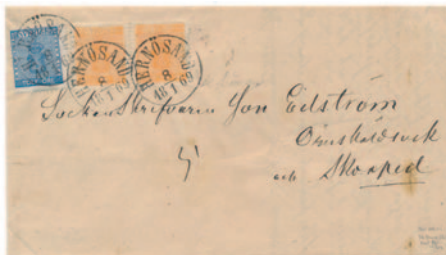 HERNÖSAND
8
18 1 69
HERNÖSAND
8
18 1 69
Sockenskrifvaren Jon Edström
Örnsköldsvik
och Skorped